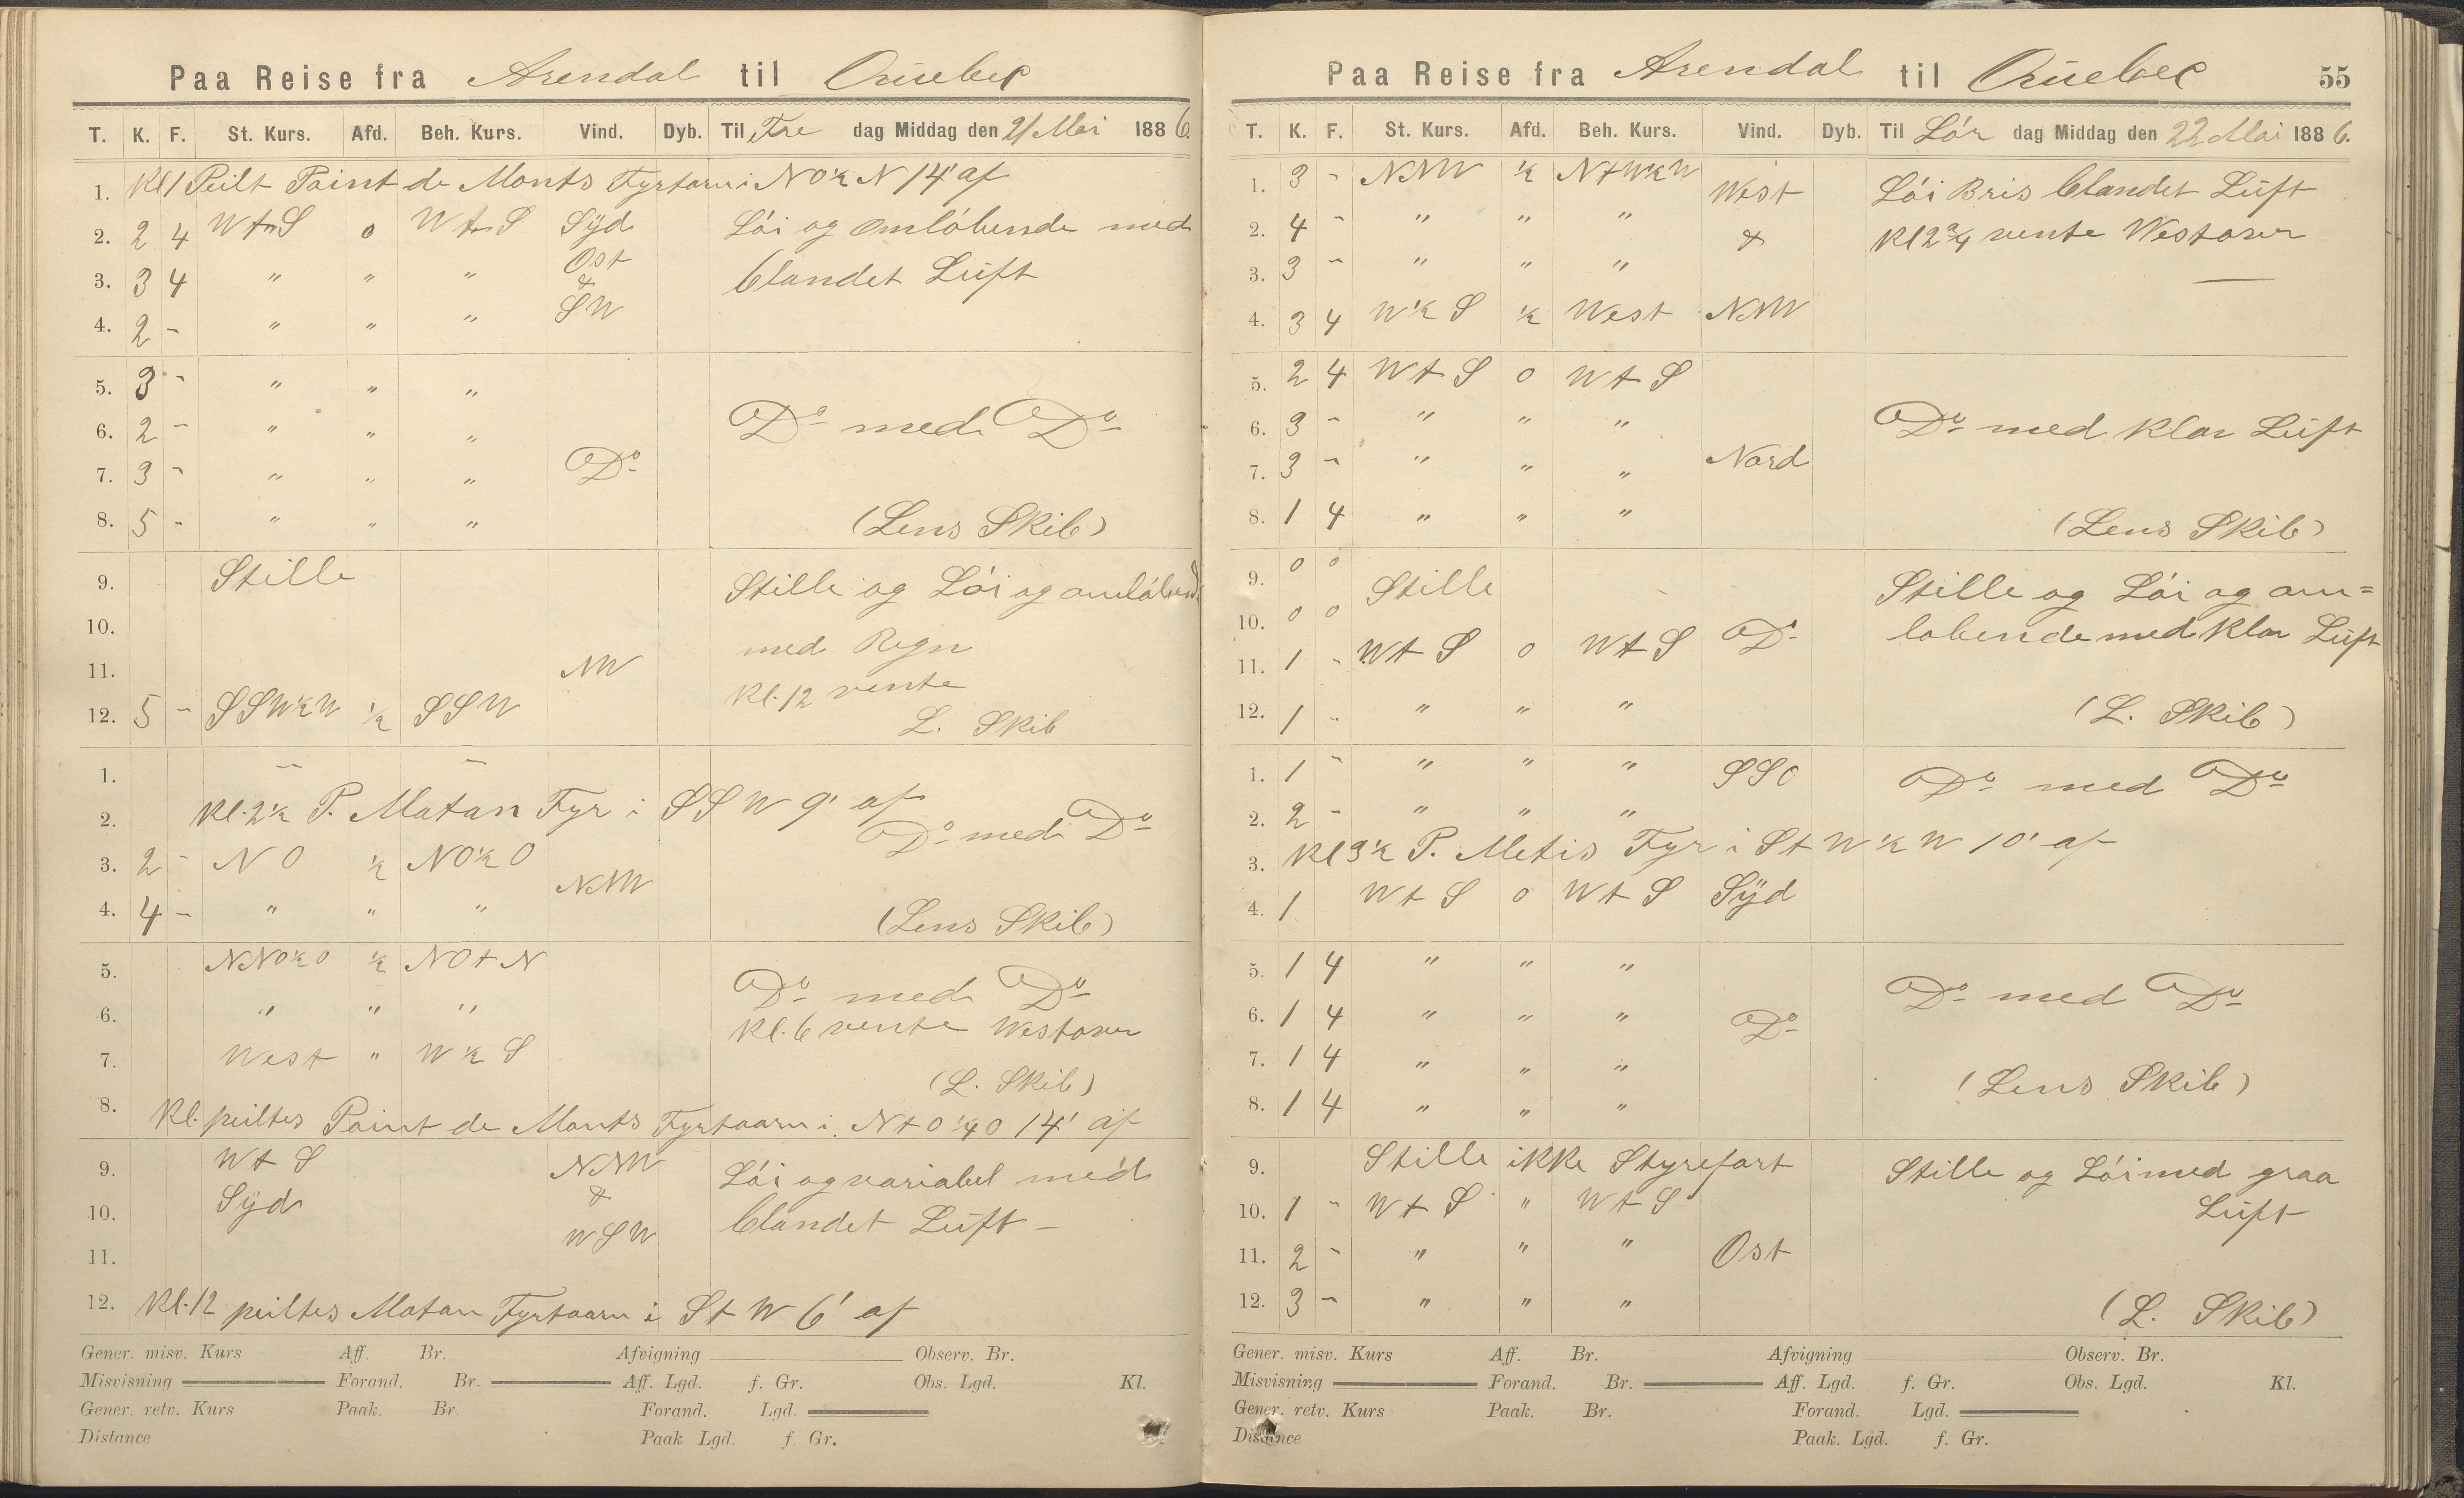 Paa Reise fra Arendal til Quebec
T. K. F. St. Kurs. Afd. Beh. Kurs. Vind. Dyb. Til Fre dag Middag den 21 Mai 1886.
1. Kl 1 Peilt Point de Monts Fyrtarn i NO½N 14' af
2. 2 4 WtS 0 WtS Syd Löi og omlöbende med
3. 3 4 " " " Ost & blandet Luft
4. 2 - " " " SW
5. 3 - " " "
6. 2 - " " " Do med Do
7. 3 - " " " Do
8. 5 - " " " (Lens Skib)
9. Stille Stille og Löi og omlöbend
10. med Regn
11. NW Kl. 12 vente
12. 5 - SSW½W ½ SSW L. Skib
1. — —
2. Kl. 2½ P. Matan Fyr i SSW 9' af
Do med Do
3. 2 - NO ½ NO½O
4. 4 - " " " NNW (Lens Skib)
5. NNO½O ½ NOtN Do med Do
6. " " " Kl. 6 vente Westover
7. West " W½S (L. Skib)
8. Kl. peiltes Point de Monts Fyrtaarn i NtO¼O 14' af
9. WtS NNW Löi og variabel med
10. Syd & blandet Luft -
11. WSW
12. Kl. 12 peiltes Matan Fyrtaarn i StW 6' af
Gener. misv. Kurs Aff. Br. Afvigning Observ. Br.
Misvisning Forand. Br. Aff. Lgd. f. Gr. Obs. Lgd. Kl.
Gener. retv. Kurs Paak. Br. Forand. Lgd.
Distance Paak Lgd. f. Gr.
Paa Reise fra Arendal til Quebec 55
T. K. F. St. Kurs. Afd. Beh. Kurs. Vind. Dyb. Til Lör dag Middag den 22 Mai 1886.
1. 3 - NNW ½ NtW½W West Löi Bris blandet Luft
2. 4 - " " " & Kl 2¾ vente Westover
3. 3 - " " " —
4. 3 4 W½S ½ West NNW
5. 2 4 WtS 0 WtS
6. 3 - " " " Do med klar Luft
7. 3 - " " " Nord
8. 1 4 " " " (Lens Skib)
9. 0 0 Stille Stille og Löi og om=
10. 0 0 löbende med klar Luft
11. 1 - WtS 0 WtS Do
12. 1 - " " " (L. Skib)
1. 1 - " " " SSO Do med Do
2. 2 - " " "
3. Kl 3½ P. Metis Fyr i StW½W 10' af
4. 1 WtS 0 WtS Syd
5. 1 4 " " " Do med Do
6. 1 4 " " " Do
7. 1 4 " " " (Lens Skib)
8. 1 4 " " "
9. Stille ikke Styrefart Stille og Löi med graa
10. 1 - WtS " WtS Luft
11. 2 - " " " Ost
12. 3 - " " " (L. Skib)
Gener. misv. Kurs Aff. Br. Afvigning Observ. Br.
Misvisning Forand. Br. Aff. Lgd. f. Gr. Obs. Lgd. Kl.
Gener. retv. Kurs Paak. Br. Forand. Lgd.
Distance Paak. Lgd. f. Gr.